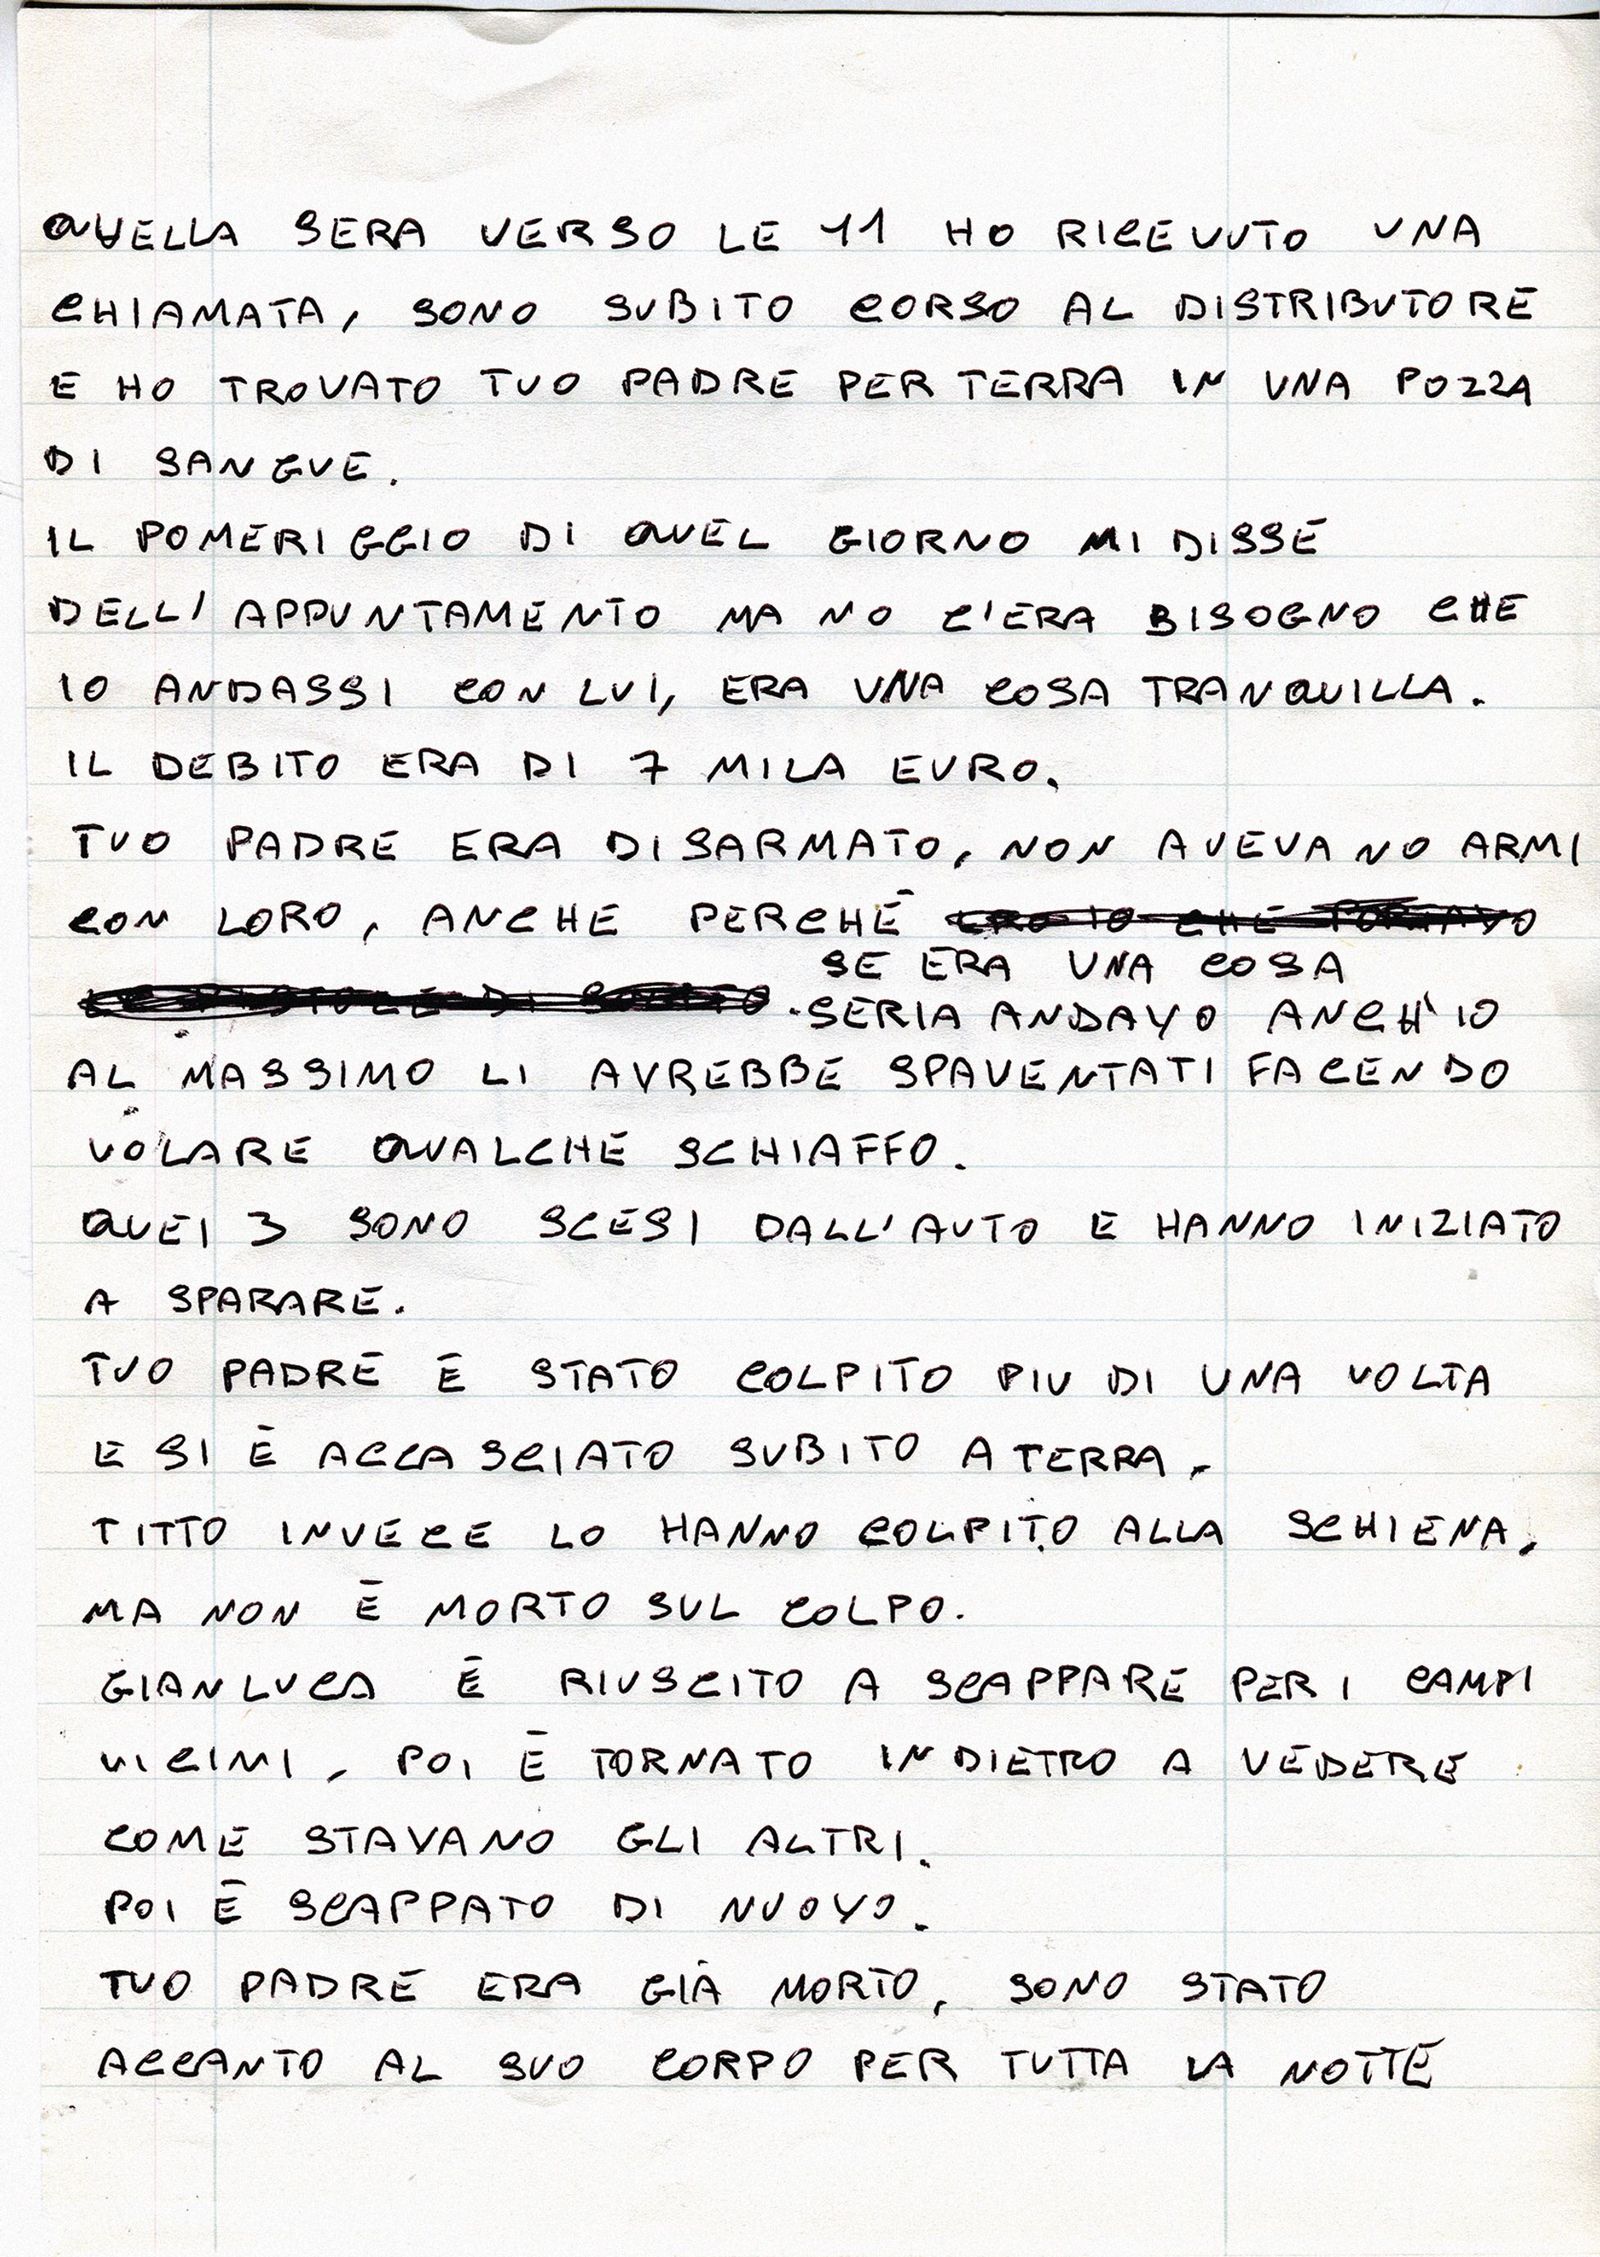 QUELLA SERA VERSO LE 11 HO RICEVUTO UNA
CHIAMATA, SONO SUBITO CORSO AL DISTRIBUTORE
E HO TROVATO TUO PADRE PER TERRA IN UNA POZZA
DI SANGUE.
IL POMERIGGIO DI QUEL GIORNO MI DISSE
DELL'APPUNTAMENTO MA NO C'ERA BISOGNO CHE
IO ANDASSI CON LUI, ERA UNA COSA TRANQUILLA.
IL DEBITO ERA DI 7 MILA EURO.
TUO PADRE ERA DISARMATO, NON AVEVANO ARMI
CON LORO, ANCHE PERCHÉ ERO IO CHE PORTAVO
SE ERA UNA COSA
LE PISTOLE DI SOLITO. SERIA ANDAVO ANCH'IO
AL MASSIMO LI AVREBBE SPAVENTATI FACENDO
VOLARE QUALCHE SCHIAFFO.
QUEI 3 SONO SCESI DALL'AUTO E HANNO INIZIATO
A SPARARE.
TUO PADRE È STATO COLPITO PIU DI UNA VOLTA
E SI È ACCASCIATO SUBITO A TERRA.
TITTO INVECE LO HANNO COLPITO ALLA SCHIENA,
MA NON È MORTO SUL COLPO.
GIANLUCA È RIUSCITO A SCAPPARE PER I CAMPI
VICINI, POI È TORNATO INDIETRO A VEDERE
COME STAVANO GLI ALTRI.
POI È SCAPPATO DI NUOVO.
TUO PADRE ERA GIÀ MORTO, SONO STATO
ACCANTO AL SUO CORPO PER TUTTA LA NOTTE